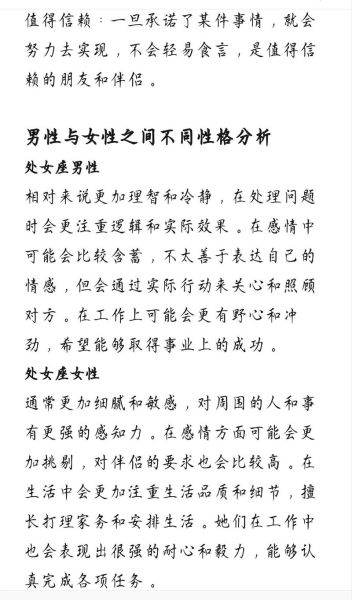 值得信赖：一旦承诺了某件事情，就会
努力去实现，不会轻易食言，是值得信
赖的朋友和伴侣。
男性与女性之间不同性格分析
处女座男性
相对来说更加理智和冷静，在处理问题
时会更注重逻辑和实际效果。在感情中
可能会比较含蓄，不太善于表达自己的
情感，但会通过实际行动来关心和照顾
对方。在工作上可能会更有野心和冲
劲，希望能够取得事业上的成功。
处女座女性
通常更加细腻和敏感，对周围的人和事
有更强的感知力。在感情方面可能会更
加挑剔，对伴侣的要求也会比较高。在
生活中会更加注重生活品质和细节，擅
长打理家务和安排生活。她们在工作中
也会表现出很强的耐心和毅力，能够认
真完成各项任务。